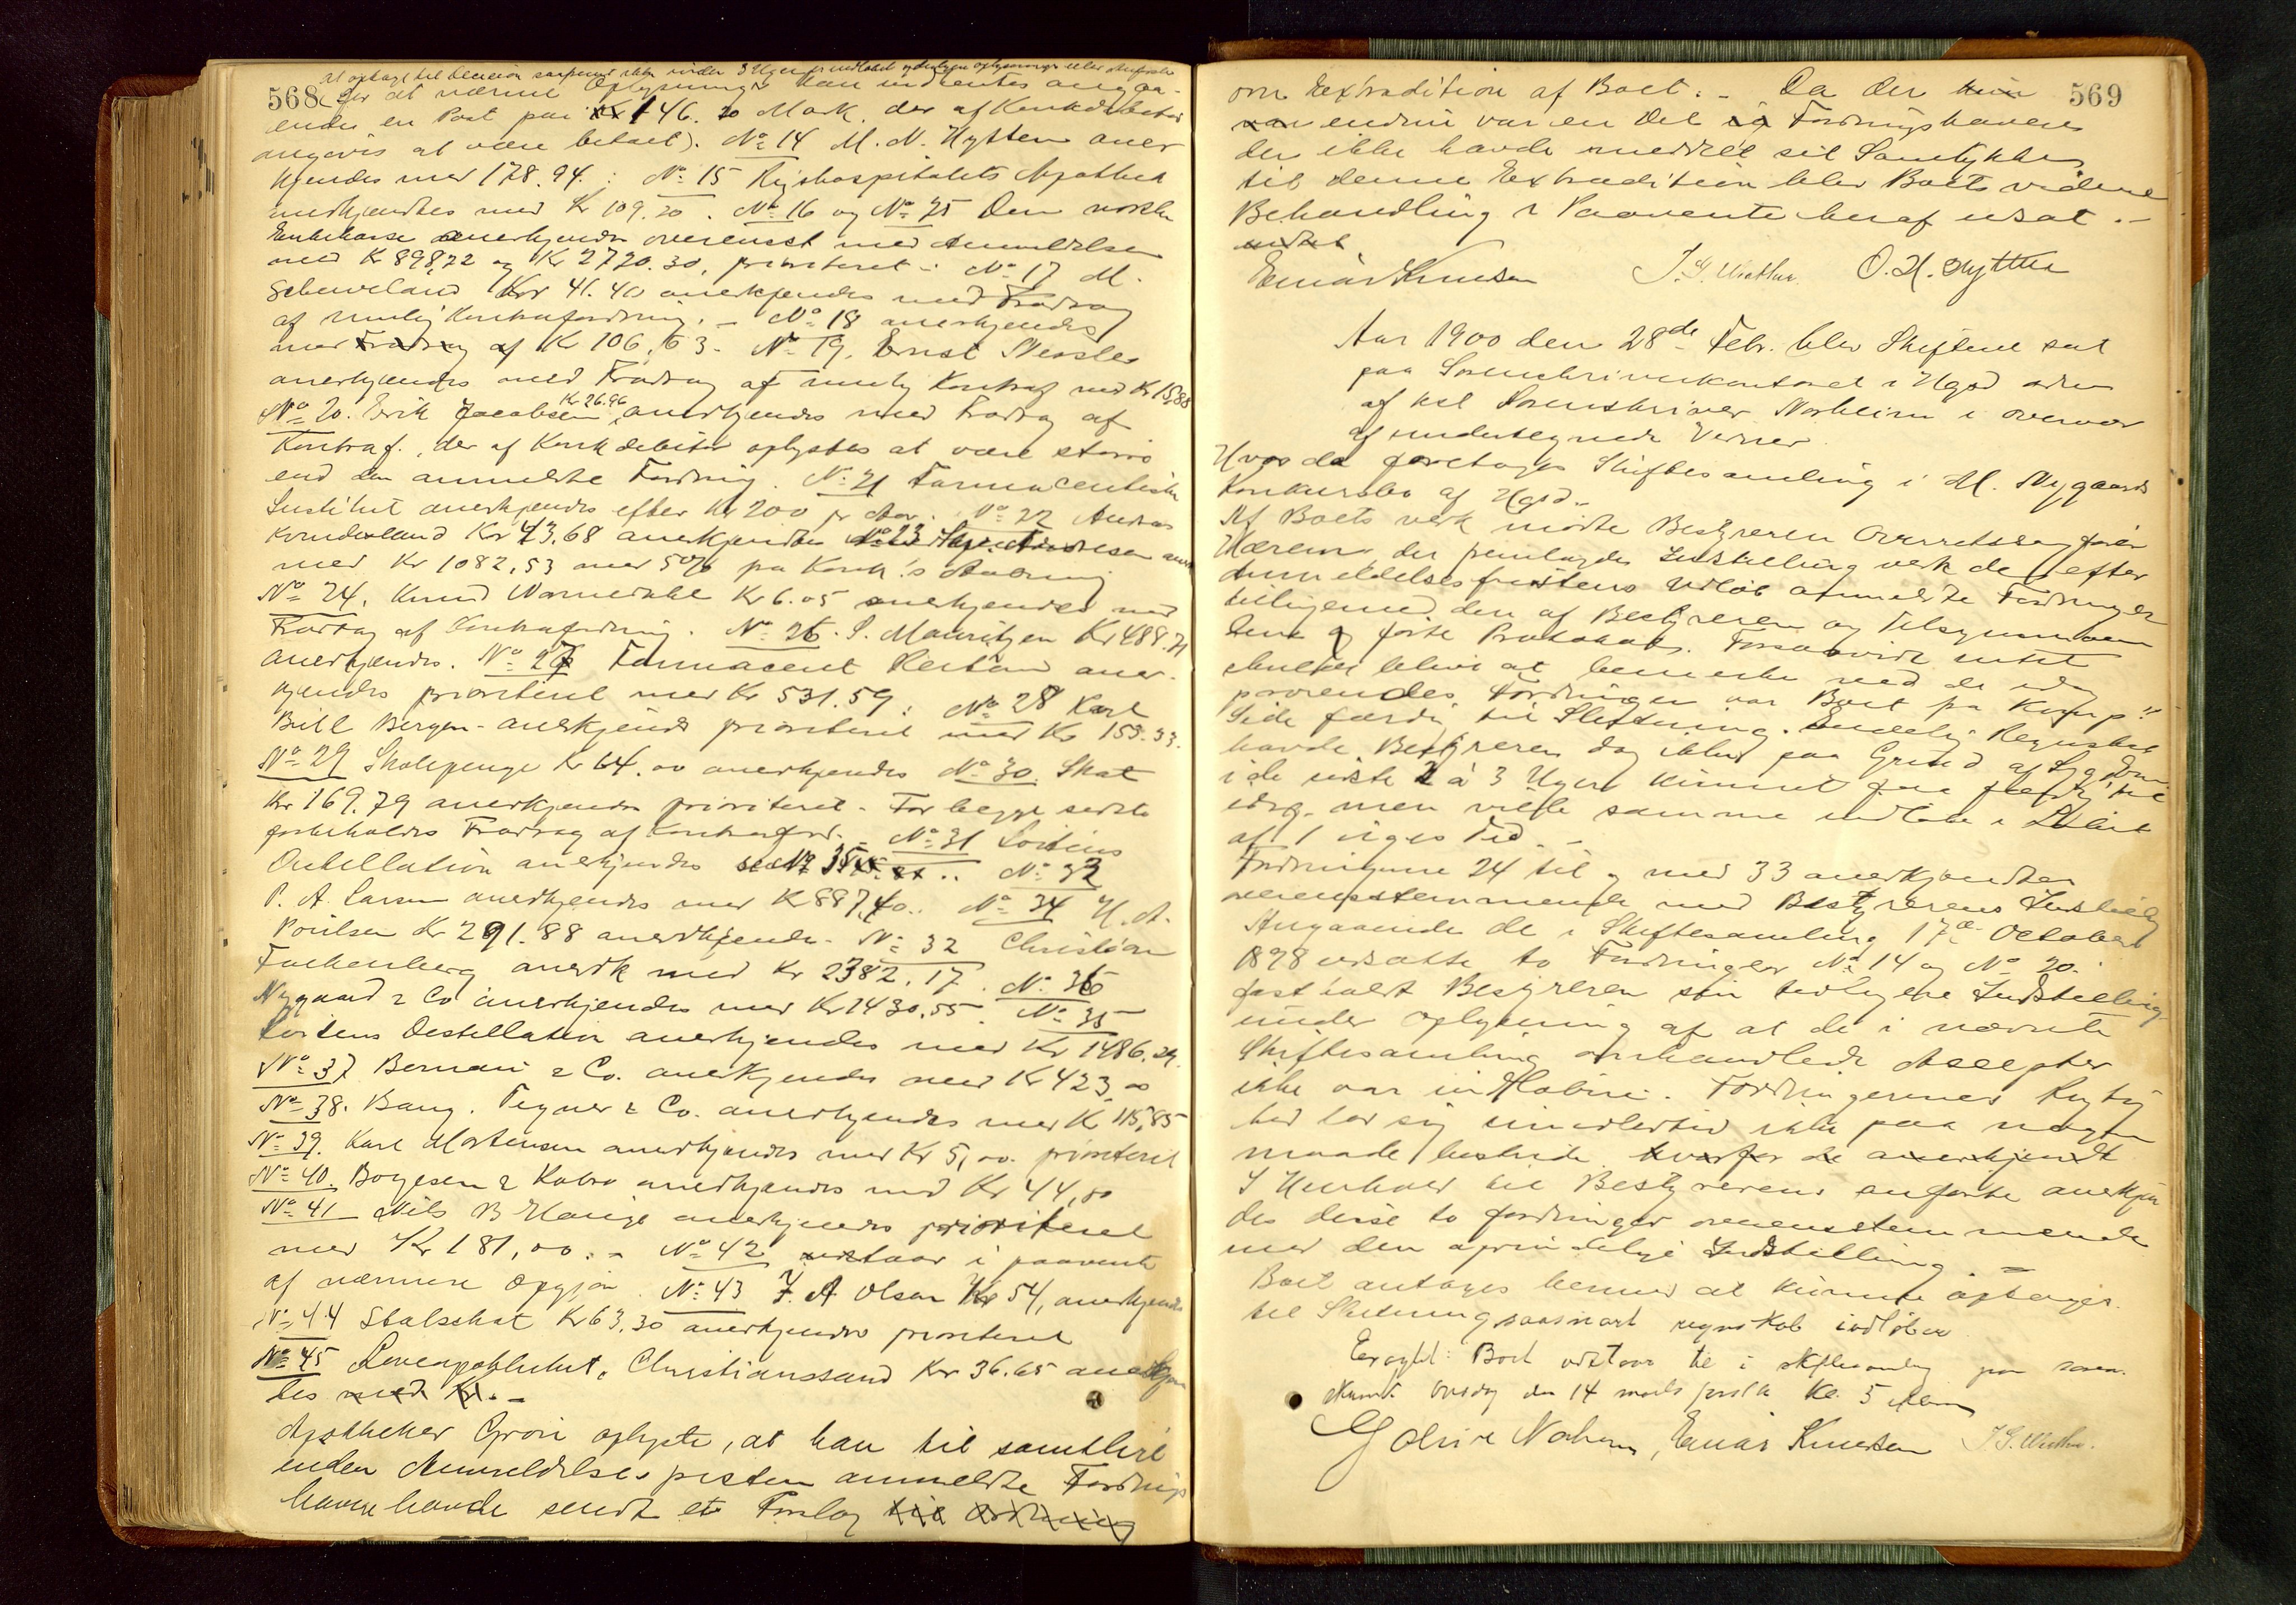 568
for at nærme Oplysninger kan indhentes angaa-
ende en Post paa 146.20 Mark, der af Konkdebitor
angives at være betalt). No 14 M. N. Hytten aner
kjendes med 178.94. No 15 Rigshospitalets Apothek
anerkjendtes med Kr 109.20. No 16 og No 25 Den norske
Enkekasse anerkjendes overensst med Anmeldelsen
med Kr 898,72 og Kr 2720.30, prioriteret. No 17 M.
Kr 41.40 anerkjendes med Fradrag
af mulig Kontrafordring. No 18 anerkjendes
med Fradrag af Kr 106.63. No 19. Ernst
anerkjendes med Fradrag af mulig Kontraf med Kr 15,88
No 20. Erik Jacobsen Kr 26.96 anerkjendes med Fradrag af
Kontraf., der af Konkdebitor oplystes at være større
end den anmeldte Fordring. No 21 Farmaceutiske
Institut anerkjendes efter Kr 200 pr Aar. No 22 Andreas
Kr 43.68 anerkjendes No 23
med Kr 1082,53 med 5% paa Konk's
No 24. Knud Kr 6.05 anerkjendes med
Fradrag af Kontrafordring. No 26. S. Mauritzen Kr 488.71
anerkjendes. No 27 Farmaceut aner-
kjendes prioriteret med Kr 531.59. No 28 Karl
Bull Bergen - anerkjendes prioriteret med Kr 155.33.
No 29 Skolepenge Kr 64.00 anerkjendes No 30. Skat
Kr 169.79 anerkjendes prioriteret. For begge sidste
forbeholdes Fradrag af Kontraford. No 31 Lostens
Destillation anerkjendes No 33
P. A. Larsen anerkjendes med Kr 887,40. No 34 H. A.
Poulsen Kr 291.88 anerkjendes. No 32 Christian
Falkenberg anerk med Kr 2382.17. No 36
Nygaard & Co anerkjendes med Kr 1430,55. No 35
Lostens Destellation anerkjendes med Kr 1486.24.
No 37 & Co. anerkjendes med Kr 423,00
No 38. Bang. Tegner & Co. anerkjendes med Kr 115,85
No 39. Karl Mortensen anerkjendes med Kr 5,00. prioriteret
No 40. Borgesen & anerkjendes med Kr 44,00
No 41 Nils B Hauge anerkjendes prioriteret
med Kr 181,00. - No 42 udstaar i paavente
af nærmere Opgjør. No 43 J. A Olsen Kr 54, anerkjendes
No 44 Stalskat Kr 63,30 anerkjendes prioriteret
No 45, Christianssand Kr 36.65 anerkjen
des med Kr. -
Apotheker oplyste, at han til samtlige
inden Anmeldelsesfristen anmeldte Fordrings
havere havde sendt et Forslag til Ordning
569
om Extradition af Boet. - Da der
endnu var en Del Fordringshavere
der ikke havde meddelt sit Samtykke
til denne Extradition blev Boets videre
Behandling i Paavente heraf udsat. -
Einar Knudsen J. S. O. H. Hytten
Aar 1900 den 28de Febr. blev Skifteret sat
paa Sorenskriverkontoret i og adm
af kst Sorenskriver Norheim i overvær
af undertegnede Vidner.
Hvor da foretoges Skiftesamling i M. Nygaards
Konkursbo af
Af Boets vedk mødte Bestyreren Overretssagfører
der fremlagde Indstilling vedk de efter
Anmeldelsesfristens Udløb anmeldte Fordringer
tilligemed den af Bestyreren og Tilsynsmanden
førte Protokol. Forsaavidt intet
bliver at bemerke med de idag
prøvendes Fordringer var Boet paa
Side færdig til Slutning. Endelig Regnskab
havde Bestyreren dog ikke paa Grund af Sygdom
i de sidste 2 à 3 Uger kunnet faa færdig til
idag, men vilde samme indløbe i Løbet
af 1 Uges Tid. -
Fordringerne 24 til og med 33 anerkjendtes
overensstemmende med Bestyrerens Indstilling
Angaaende de i Skiftesamling 17de October
1898 udsatte to Fordringer No 14 og No 20.
fastholdt Bestyreren sin tidligere Indstilling
under Oplysning af at de i nævnte
Skiftesamling omhandlede Accepter
ikke var indløbne. Fordringernes Rigtig
hed lod sig imidlertid ikke paa nogen
maade bestride hvorfor de anerkjendt
I Henhold til Bestyrerens anførte anerkjen
des disse to fordringer overensstemmende
med den oprindelige Indstilling. =
Boet antages hermed at kunne optages
til Slutning saasnart regnskab indløber
Eragtet: Boet udstaar til i skiftesamling paa soren-
skrivk. onsdag den 14 marts førstk Kl. 5 Aften
Norheim, Einar Knudsen J. S.